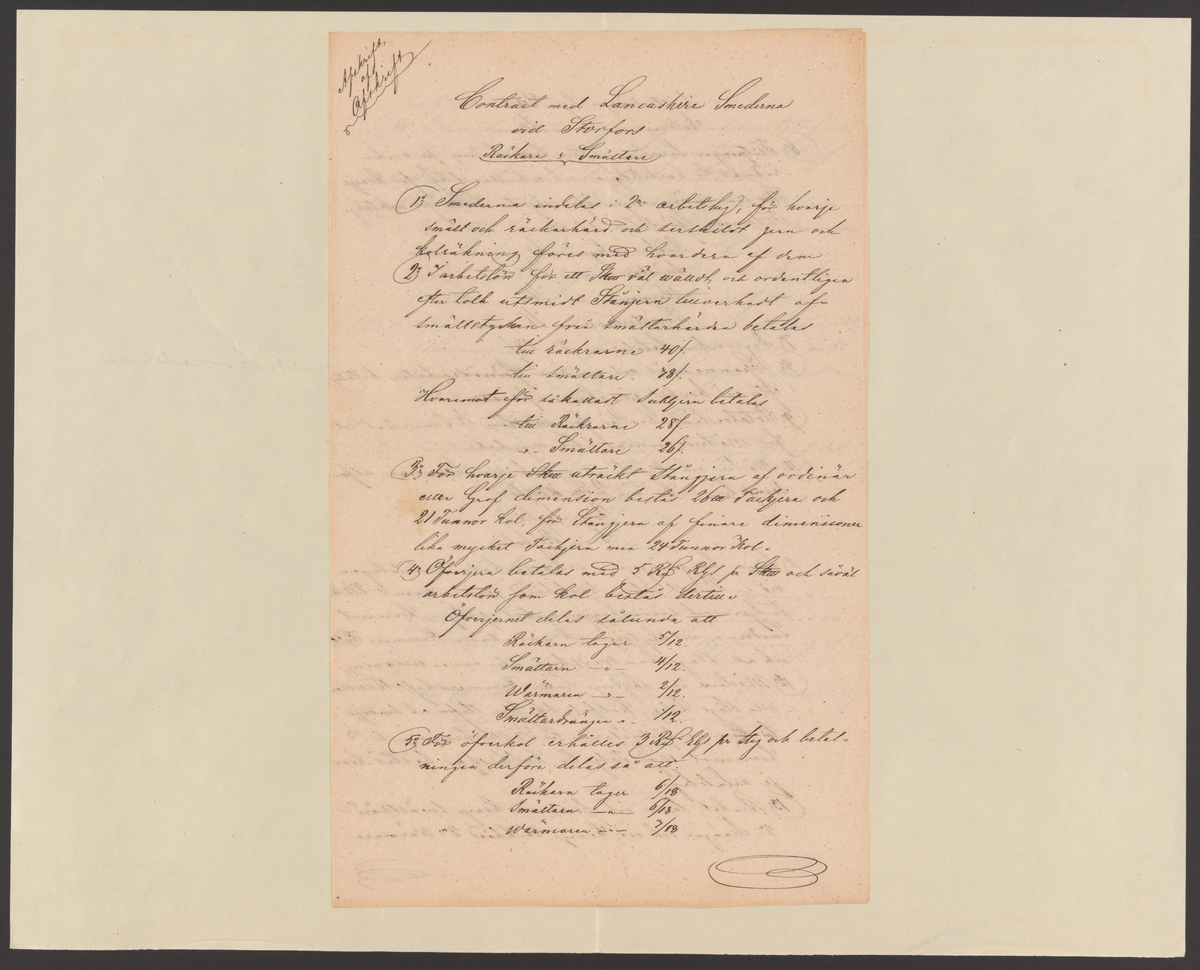 Afskrift
af
Afskrift
Contract med Lancashire Smederna
vid Storfors
Räckare & Smältare
1º, Smederna indelas i 2ne arbetslag, för hvarje
smält och räckarhärd och serskildt jern och
kolräkning föres med hvardera af dem
2º, I arbetslön för ett Sk℔ väl wälldt och ordentligen
efter tolk utsmidt Stångjern tillverkadt af
smältstycken från smältarhärden betalas
till räckrarne 40/.
till smältare 38/.
Hvaremot för så kalladt jern betalas
till Räckrarne 28/.
" Smältare 26/.
3º, För hvarje Sk℔ uträckt Stångjern af ordinär
eller Grof dimension bestås 26 ℔ Tackjern och
21 Tunnor kol, för Stångjern af finare dimensioner
lika mycket Tackjern men 24 Tunnor Kol.
4º, Öfverjern betalas med 5 Rd Rgs pr Sk℔ och såväl
arbetslön som kol bestås dertill.
Öfverjernet delas sålunda att
Räckarn tager 5/12.
Smältarn —"— 4/12.
Wärmaren —"— 2/12.
Smältardrängen " 1/12.
5º, För öfverkol erhålles 3 Rd Rgs pr stig och betal-
ningen derföre delas så att.
Räckarn tager 6/18
Smältarn —"— 6/18
Wärmaren —"— 3/18